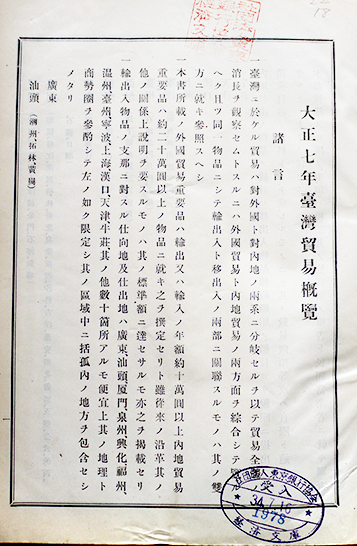 大正七年臺灣貿易概覽
諸言
一臺灣ニ於ケル貿易ハ對外國ト對內地ノ兩系ニ分岐セルヲ以テ貿易全
消長ヲ觀察セムトスルニハ外國貿易ト內地貿易ノ兩方面ヲ綜合シテ
ヘク且ツ同一物品ニシテ輸出入ト移出入ノ兩部ニ關聯スルモノハ其ノ雙
方ニ就キ參照スヘシ
一本書所載ノ外國貿易重要品ハ輸出又ハ輸入ノ年額約十萬圓以上內地貿易
重要品ハ約二十萬圓以上ノ物品ニ就キ之ヲ撰定セリト雖從來ノ沿革其ノ
他ノ關係上說明ヲ要スルモノハ其ノ標準額ニ達セサルモ亦之ヲ揭載セリ
一輸出入物品ノ支那ニ對スル仕向地及仕出地ハ廣東汕頭厦門泉州興化福州、
溫州臺州寧波、上海漢口、天津牛莊其ノ他數十箇所アルモ便宜上其ノ地理ト
商勢圈ヲ參酌シテ左ノ如ク限定シ其ノ區域中ニ括孤內ノ地方ヲ包合セシ
メタリ
廣東
汕頭(潮州拓林黃岡)
受入
1978
經濟文庫